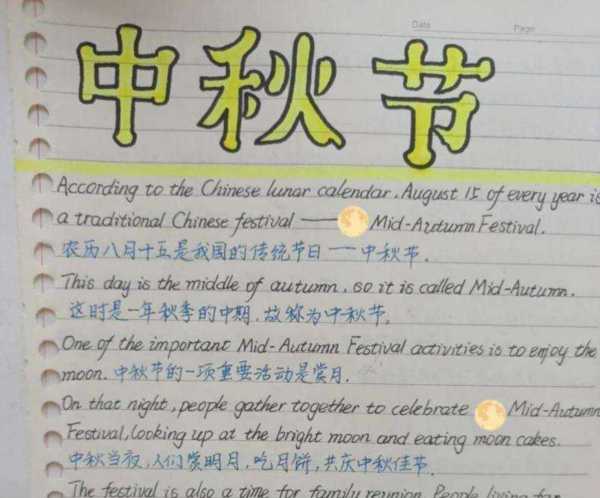 Date Page
中秋节
According to the Chinese lunar calendar, August 15 of every year is
a traditional Chinese festival —— Mid-Autumn Festival.
农历八月十五是我国的传统节日 — 中秋节.
This day is the middle of autumn, so it is called Mid-Autumn.
这时是一年秋季的中期,故称为中秋节。
One of the important Mid-Autumn Festival activities is to enjoy the
moon. 中秋节的一项重要活动是赏月.
On that night, people gather together to celebrate Mid-Autumn
Festival, looking up at the bright moon and eating moon cakes.
中秋当夜,人们赏明月,吃月饼,共庆中秋佳节.
The festival is also a time for family reunion. People living far